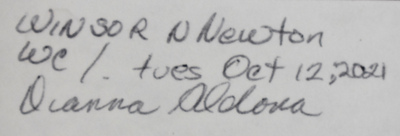 WINSOR N Newton
WC /. tues Oct 12, 2021
Dianna Aldona